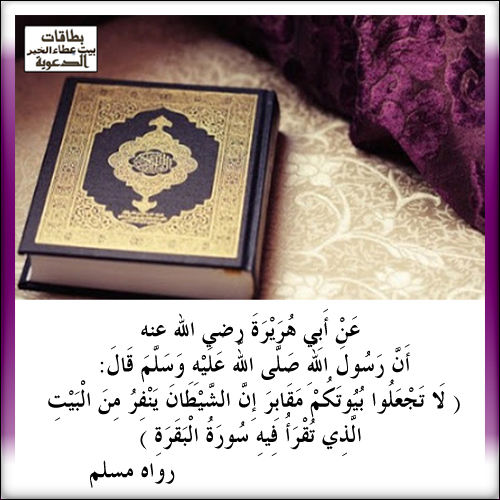 بطاقات
بيت عطاء الخير
الدعوية
عَنْ أَبِي هُرَيْرَةَ رضي الله عنه
أَنَّ رَسُولَ اللهِ صَلَّى اللهُ عَلَيْهِ وَسَلَّمَ قَالَ:
( لَا تَجْعَلُوا بُيُوتَكُمْ مَقَابِرَ إِنَّ الشَّيْطَانَ يَنْفِرُ مِنَ الْبَيْتِ
الَّذِي تُقْرَأُ فِيهِ سُورَةُ الْبَقَرَةِ )
رواه مسلم